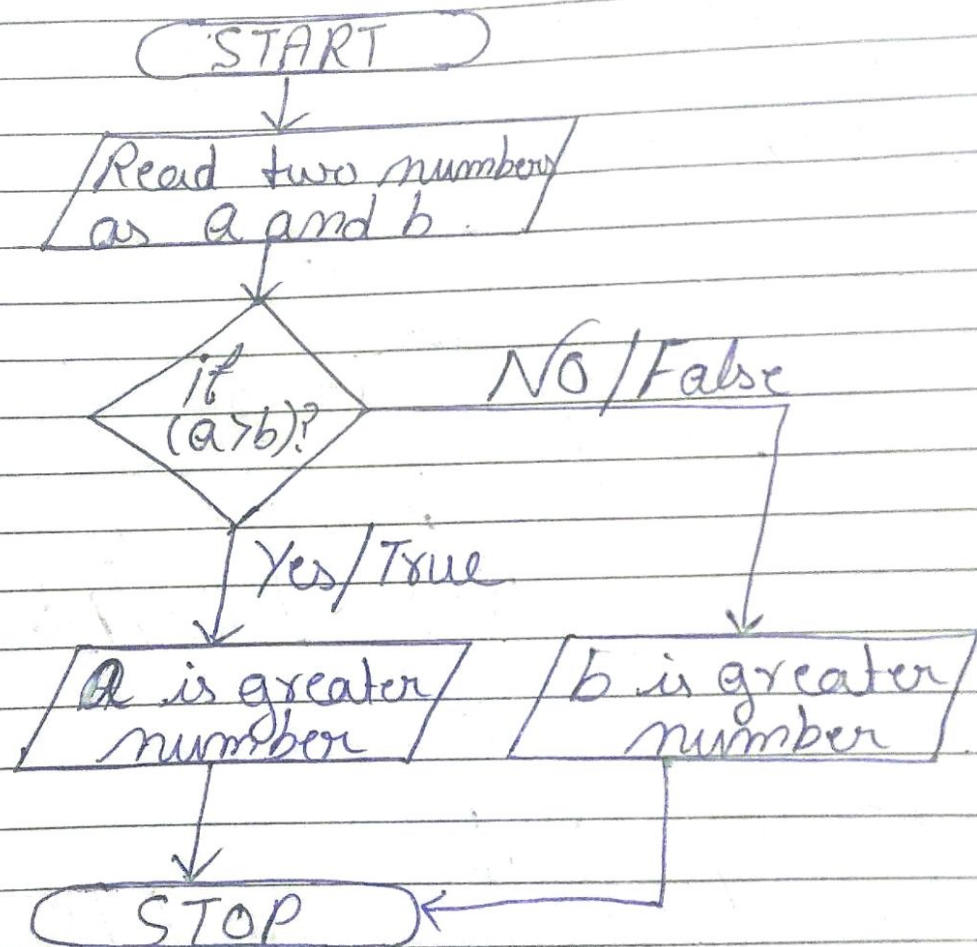 START
Read two numbers
as a and b.
if
(a>b)?
NO/False
Yes/True
a is greater
number
b is greater
number
STOP